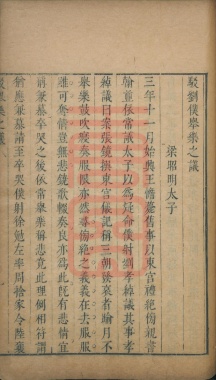 駁劉僕舉樂之議
梁昭明太子
三年十一月始興王憺薨舊事以東宮禮絶傍親書
翰並依常儀太子以為疑命僕射劉孝綽議其事孝
綽議曰案張鏡撰東宮儀記稱三朝發哀者踰月不
舉樂鼓吹寢奏服限亦然尋傍絶之義義在去服服
雖可奪情豈無悲鐃歌輟奏良亦為此既有悲情宜
稱兼慕卒哭之後依常舉樂稱悲竟此理例相符謂
猶應兼慕請至卒哭僕射徐勉左率周捨家令陸襄